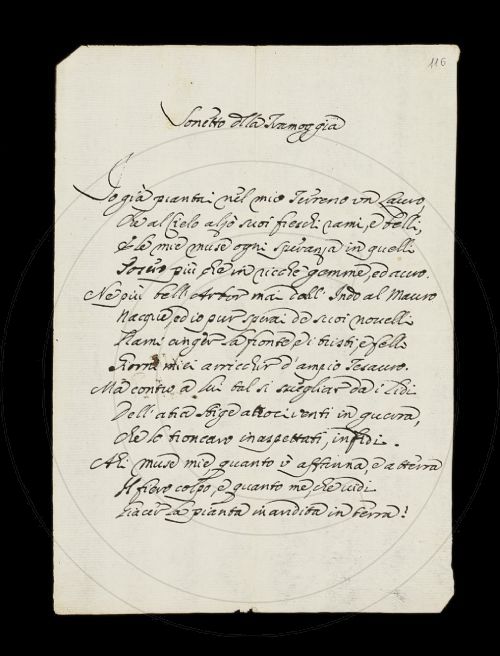 116
Sonetto della Ramoggia
Io già piantai nel mio Terreno un Lauro,
Che al Cielo alzò suoi freschi rami, e belli,
E le mie muse ogni speranza in quelli
Posero più, che in ricche gemme, ed auro.
Nè più bell'Arbor mai dall'Indo al Mauro
Nacque, ed io pur sperai de suoi novelli
Rami cinger la fronte, e di tristi, e felli
Giorni miei arricchir d'ampio Tesauro.
Ma contro a lui tal si svegliar da i lidi
Dell'atra Stige atroci venti in guerra,
Che lo troncaro inaspettati, infidi.
Ahi muse mie, quanto v'affanna, e atterra
Il fiero colpo, e quanto me, che vidi
Giacer la pianta inaridita in terra!